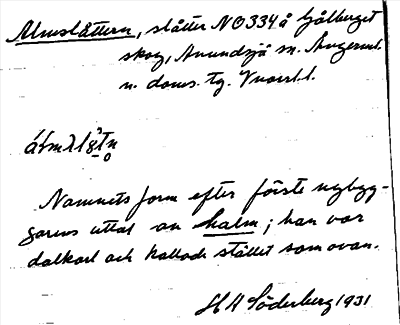 Almslåttern, slåtter NO 334 å Gålberget
skog, Anundsjö sn. Ångerml.
n. doms. tg. Vnorrl. l.
Namnets form efter förste nybyg-
garens uttal av halm; han var
dalkarl och kallade stället som ovan.
H H Söderberg 1931